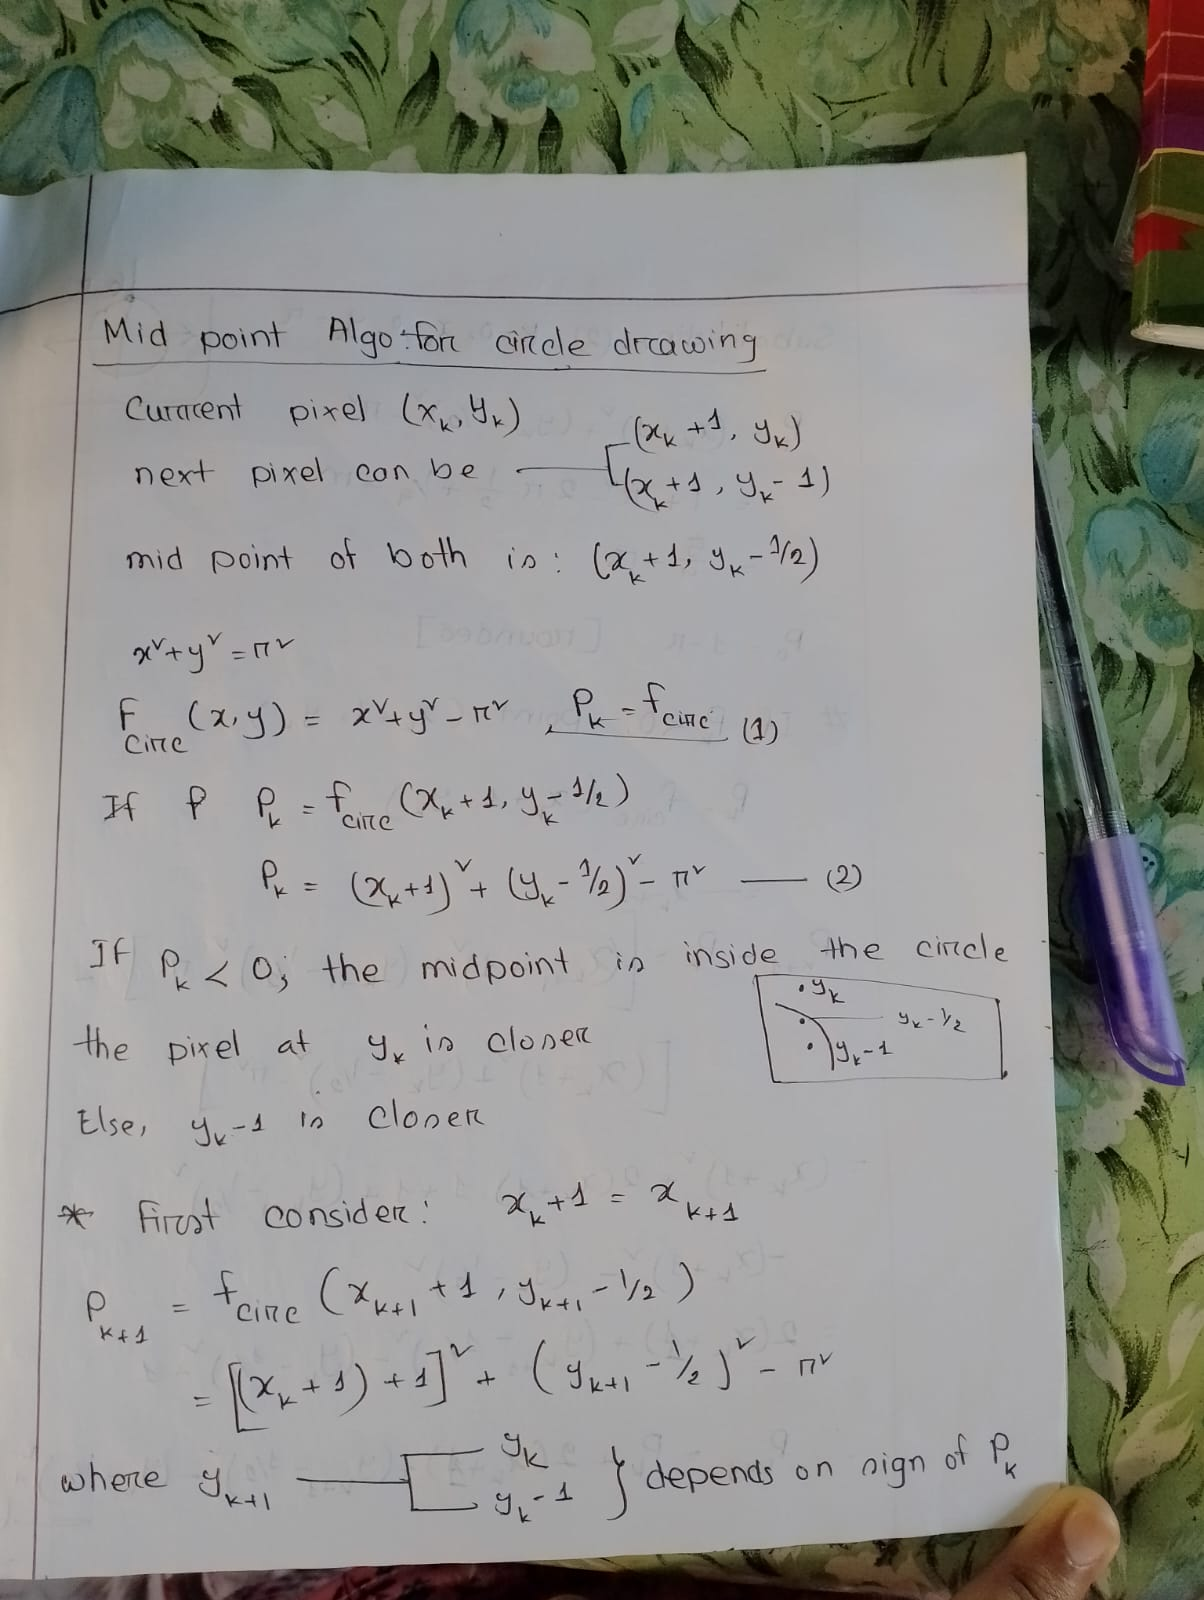 Mid point Algo: for circle drawing
Current pixel (xₖ, yₖ)
(xₖ+1, yₖ)
next pixel can be
(xₖ+1, yₖ-1)
mid point of both is: (xₖ+1, yₖ-1/2)
x²+y² = r²
F circ (x,y) = x²+y²-r², Pₖ = f circ (1)
If P Pₖ = f circ (xₖ+1, yₖ-1/2)
Pₖ = (xₖ+1)² + (yₖ-1/2)² - r² — (2)
If Pₖ < 0; the midpoint is inside the circle
the pixel at yₖ is closer
yₖ
yₖ-1/2
yₖ-1
Else, yₖ-1 is closer
* First consider: xₖ+1 = xₖ₊₁
Pₖ₊₁ = f circ (xₖ₊₁+1, yₖ₊₁-1/2)
= [(xₖ+1)+1]² + (yₖ₊₁-1/2)² - r²
where yₖ₊₁ — yₖ
yₖ-1 } depends on sign of Pₖ